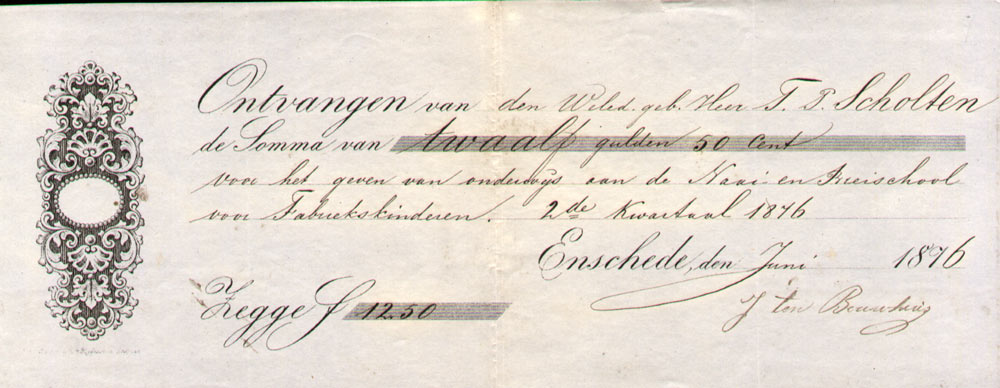 Ontvangen van den Weled. geb. Heer T. P. Scholten
de Somma van twaalf gulden 50 cent
voor het geven van onderwijs aan de Naai en Breischool
voor Fabriekskinderen. 2de Kwartaal 1876
Enschede, den Juni 1876
Zegge f 12.50
J ten Bouwhuis